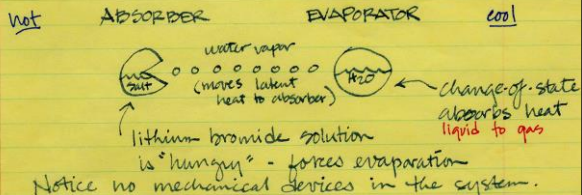 hot ABSORBER EVAPORATOR cool
water vapor
(moves latent
heat to absorber)
Salt
H2O
change-of-state
absorbs heat
liquid to gas
lithium bromide solution
is "hungry" - forces evaporation
Notice no mechanical devices in the system.